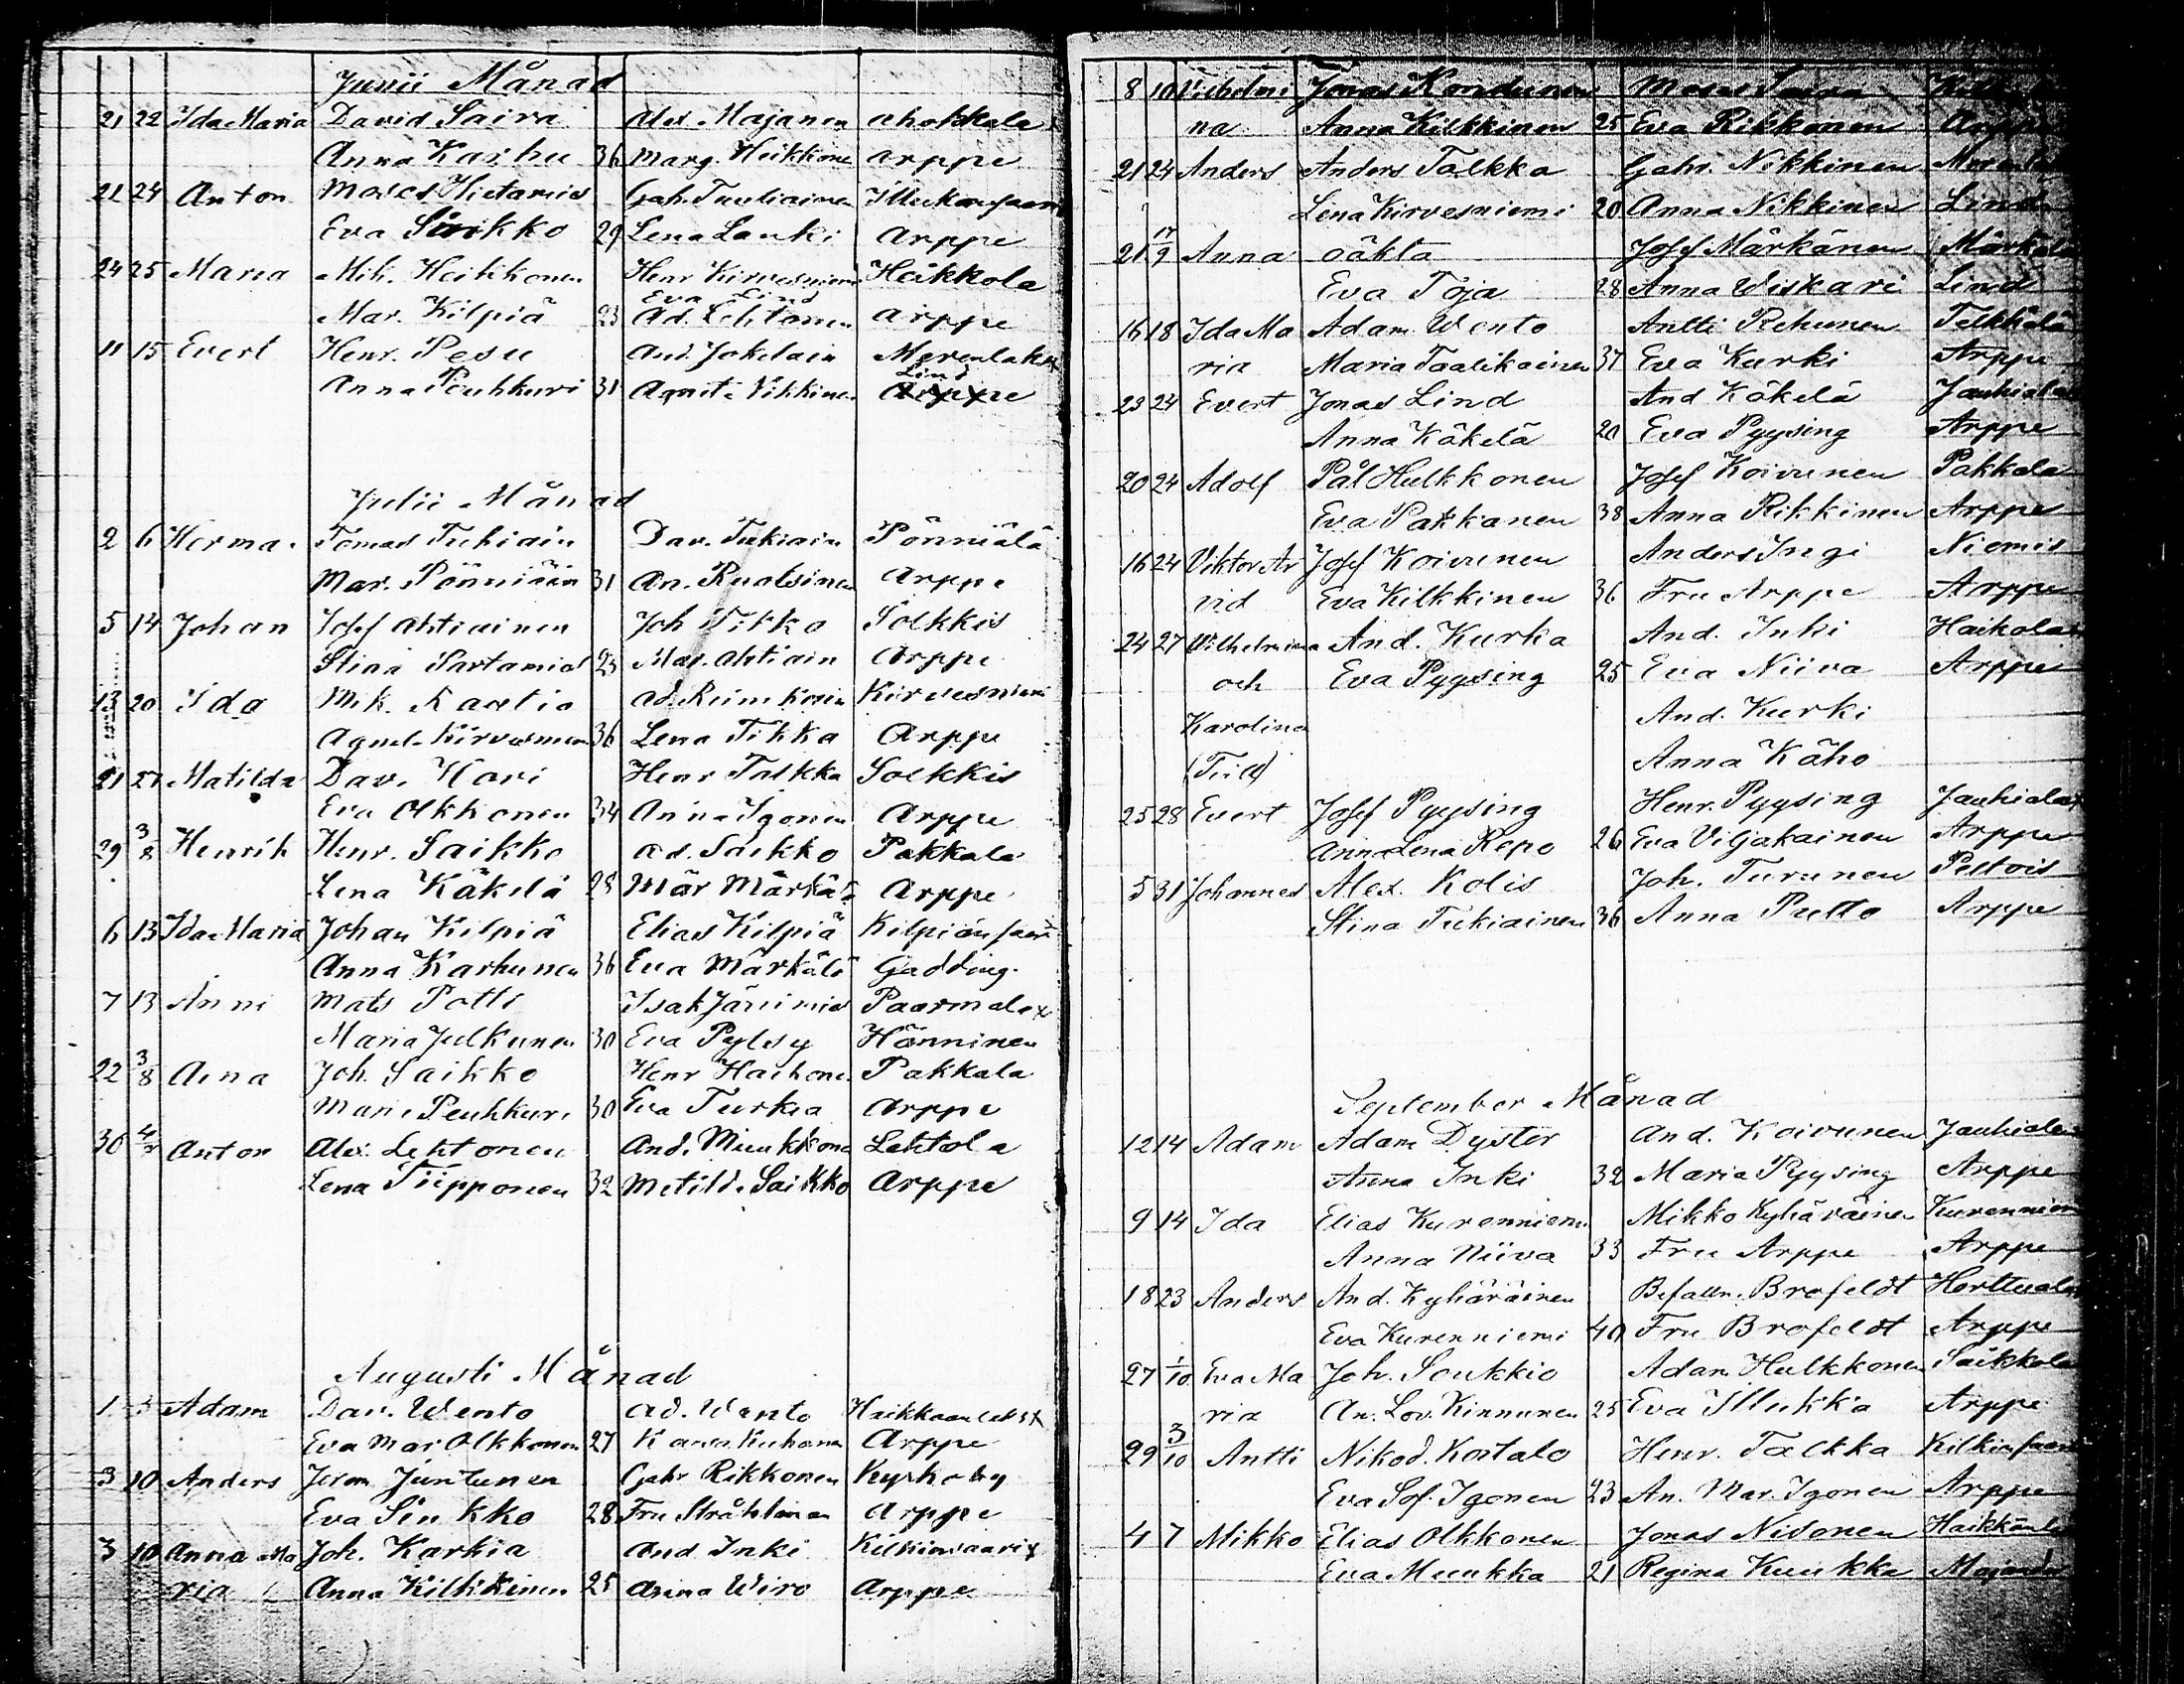 Junii Månad
21 22 Ida Maria David Saira Alex. Majanen Ahokkala
Anna Karhu 36 Marg. Heikkone Arppe
21 24 Anton Moses Hietamies Gab. Tuuliainen
Eva Saikko 29 Lena Lauki Arppe
24 25 Maria Mih. Heikkonen Henr Kirvesniemi Heikkola
Eva Lind
Mar. Kilpiä 23 Ad. Lehtonen Arppe
11 15 Evert Henr. Pesu And. Jokelain Merenlaks
Lind
Anna Peuhkuri 31 Agneta Nikkinen Arppe
Julii Månad
2 6 Herman Tomas Tukiain Dav. Tukiain Pönniälä
Mar. Pönniäin 31 An. Ruotsinen Arppe
5 14 Johan Josef Ahtiainen Joh Tikka Solkkis
Stina Partamies 23 Mar. Ahtiain Arppe
13 20 Ida Mik. Kaelio Kirvesniemi
Agnet. Kirvesniem 36 Lena Tikka Arppe
21 27 Matilda Dav. Kari Henr Talkka Solkkis
Eva Olkkonen 34 Anna Igonen Arppe
29 3/8 Henrik Henr. Saikko Ad. Saikko Pakkala
Lena Käkelä 28 Mar Märkäl Arppe
6 13 Ida Maria Johan Kilpiä Elias Kilpiä Kilpiänsaari
Anna Karhunen 36 Eva Märkälä Gadding.
7 13 Anni Mats Potti Isak Jänimies Paarmala x
Maria Julkunen 30 Eva Pylsy Hänninen
22 3/8 Aina Joh. Saikko Henr Haikone. Pakkala
Mari. Peuhkuri 30 Eva Turkia Arppe
30 4/8 Anton Alex. Lehtonen And. Muukkone Lehtola
Lena Tiipponen 32 Metild. Saikko Arppe
Augusti Månad
1 3 Adam Dav. Wento Ad. Wento Haikkaanlaks x
Eva Mar Olkkonen 27 Arppe
3 10 Anders Jerem Juntunen Gabr Rikkonen Kyrkoby
Eva Siukko 28 Fru Stråhlman Arppe
3 10 Anna Ma Joh. Karkia And Inki Kilkinsaari x
ria Anna Kilkkinen 25 Anna Wiro Arppe
8 10 Vilhelmi Jonas Konduinen Moses
na Anna Kilkkinen 25 Eva Rikkonen Arppe
21 24 Anders Anders Talkka Gabr. Nikkinen
Lena Kirvesniemi 20 Anna Nikkinen Lind
21 17/9 Anna oäkta Josef Märkänen Märkäl
Eva Töja 28 Anna Wiskari Lind
16 18 Ida Ma Adam Wento Antti Rehunen Telkkälä
ria Maria Taalikainen 37 Eva Kurki Arppe
23 24 Evert Jonas Lind And Käkelä Jauhiala
Anna Käkelä 20 Eva Pyysing Arppe
20 24 Adolf Pål Hulkkonen Josef Koivunen Pakkala
Eva Pakkanen 38 Anna Rikkinen Arppe
16 24 Viktor Ar Josef Koivunen Anders Ingi Niemis
vid Eva Kilkkinen 36 Fru Arppe Arppe
24 27 Wilhelmina And. Kurka And. Inki Haikola
och Eva Pyysing 25 Eva Niiva Arppe
Karolina And. Kurki
Anna Käho
25 28 Evert Josef Pyysing Henr. Pyysing Jauhiala
Anna Lena Repo 26 Eva Viljakainen Arppe
5 31 Johannes Alex. Kolis Joh. Turunen Peltois
Stina Tukiainen 36 Anna Putto Arppe
September Månad
12 14 Adam Adam Dyster And. Koivunen Jauhiala
Anna Inki 32 Maria Pyysing Arppe
9 14 Ida Elias Kurenniemi Mikko Kyhäräinen Kurenniem
Anna Niiva 33 Fru Arppe Arppe
18 23 Anders And. Kyhäräinen Befalln. Brofeldt Herttuala
Eva Kurenniemi 40 Fru Brofeldt Arppe
27 1/10 Eva Ma Joh. Soukkio Adam Hulkkonen Saikkola
ria An. Lov. Kinnunen 25 Eva Illukka Arppe
29 3/10 Antti Nikod. Kostalo Henr. Talkka Kilkinsaari
Eva Sof. Igonen 23 An. Mar. Igonen Arppe
4 7 Mikko Elias Olkkonen Jonas Nidonen
Eva Muukka 21 Regina Kuukka